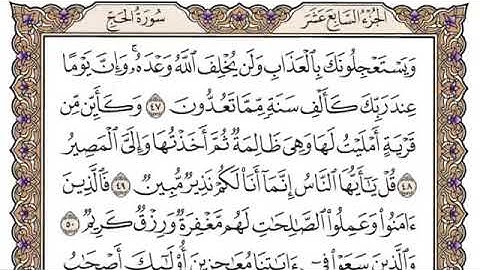 سُورَةُ الحَجِّ الجُزْءُ السَّابِعَ عَشَرَ
وَيَسْتَعْجِلُونَكَ بِٱلْعَذَابِ وَلَن يُخْلِفَ ٱللَّهُ وَعْدَهُۥۚ وَإِنَّ يَوْمًا
عِندَ رَبِّكَ كَأَلْفِ سَنَةٍ مِّمَّا تَعُدُّونَ ٤٧ وَكَأَيِّن مِّن
قَرْيَةٍ أَمْلَيْتُ لَهَا وَهِيَ ظَالِمَةٌ ثُمَّ أَخَذْتُهَا وَإِلَيَّ ٱلْمَصِيرُ
٤٨ قُلْ يَٰٓأَيُّهَا ٱلنَّاسُ إِنَّمَآ أَنَا۠ لَكُمْ نَذِيرٌ مُّبِينٌ ٤٩ فَٱلَّذِينَ
ءَامَنُوا۟ وَعَمِلُوا۟ ٱلصَّٰلِحَٰتِ لَهُم مَّغْفِرَةٌ وَرِزْقٌ كَرِيمٌ ٥٠
وَٱلَّذِينَ سَعَوْا۟ فِىٓ ءَايَٰتِنَا مُعَٰجِزِينَ أُو۟لَٰٓئِكَ أَصْحَٰبُ